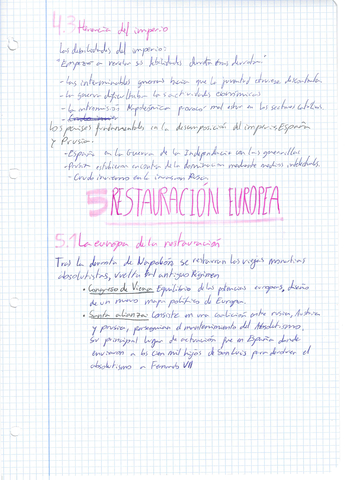 4.3 Herencia del imperio
Las debilidades del imperio:
"Empezar a revelar sus debilidades derrota tras derrota"
- Las interminables guerras hacen que la juventud estuviese descontenta
- La guerra dificultaba las actividades económicas
- La intromisión Napoleónica provocó mal estar en los sectores católicos.
Los países fundamentales en la descomposición del imperio: España
y Prusia:
- España en la Guerra de la Independencia con las guerrillas
- Prusia en contra de la dominación mediante
- Crudo invierno en la invasión Rusa
5 RESTAURACIÓN EUROPEA
5.1 La europa de la restauración
Tras la derrota de Napoleón se restauraron las viejas monarquías
absolutistas, vuelta al antiguo Régimen
• Congreso de Viena: Equilibrio de las potencias europeas, diseño
de un nuevo mapa político de Europa.
• Santa alianza: Consiste en una coalición entre rusia, Austria
y prusia, perseguían el mantenimiento del Absolutismo.
Su principal lugar de actuación fue en España donde
enviaron a los cien mil hijos de San Luis para devolver el
absolutismo a Fernando VII